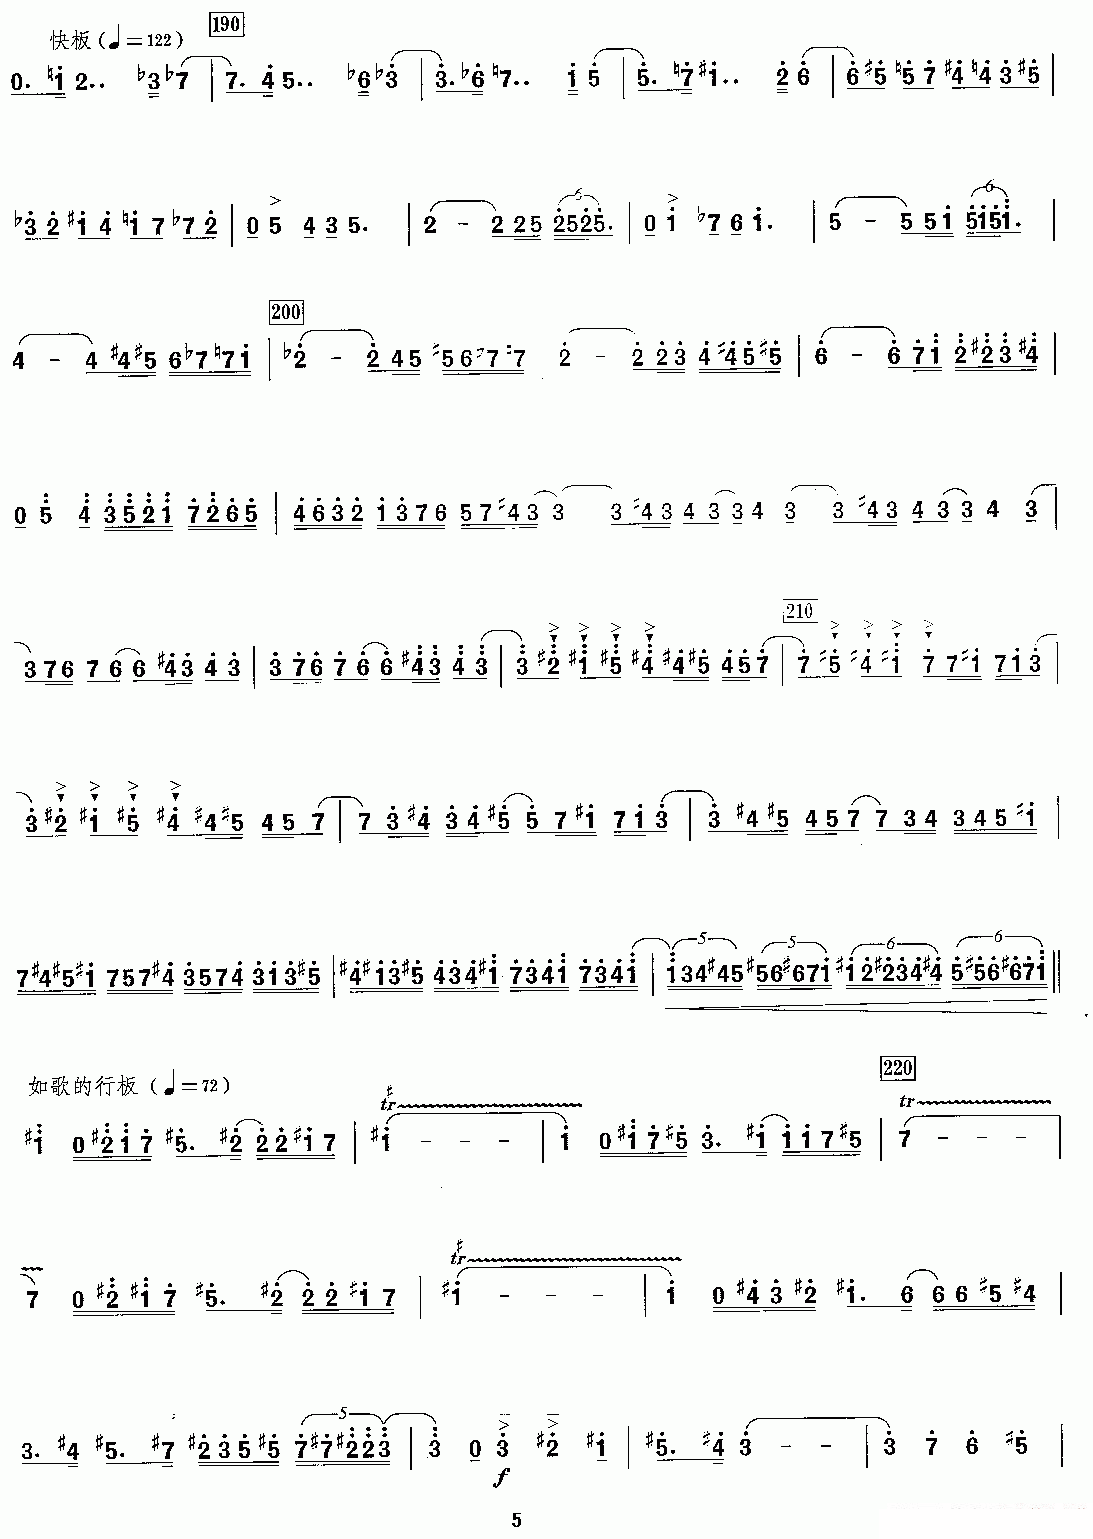 快板(♩=122) 190
0. ♮1 2.. ♭3 ♭7 | 7. 4 5.. ♭6 ♭3 | 3. ♭6 ♮7.. 1 5 | 5. ♮7 ♯1.. 2 6 | 6 ♯5 ♮5 7 ♯4 ♮4 3 ♯5 |
♭3 2 ♯1 4 ♮1 7 ♭7 2 | 0 5 4 3 5. | 2 - 2 2 5 2525. | 0 1 ♭7 6 1. | 5 - 5 5 1 5151. |
200
4 - 4 ♯4 ♯5 6 ♭7 ♮7 1 | ♭2 - 2 4 5 ♯5 6 ♯7 7 2 - 2 2 3 4 ♯4 5 ♯5 | 6 - 6 7 1 2 ♯2 3 ♯4 |
0 5 4 3 5 2 1 7 2 6 5 | 4 6 3 2 1 3 7 6 5 7 ♯4 3 3 3 ♯4 3 4 3 3 4 3 3 ♯4 3 4 3 3 4 3 |
210
3 7 6 7 6 6 ♯4 3 4 3 | 3 7 6 7 6 6 ♯4 3 4 3 | 3 ♯2 ♯1 ♯5 ♯4 ♯4 ♯5 4 5 7 | 7 ♯5 ♯4 ♯1 7 7 ♯1 7 1 3 |
3 ♯2 ♯1 ♯5 ♯4 ♯4 ♯5 4 5 7 | 7 3 ♯4 3 4 ♯5 5 7 ♯1 7 1 3 | 3 ♯4 ♯5 4 5 7 7 3 4 3 4 5 ♯1 |
7 ♯4 ♯5 ♯1 7 5 7 ♯4 3 5 7 4 3 1 3 ♯5 | ♯4 ♯1 3 ♯5 4 3 4 ♯1 7 3 4 1 7 3 4 1 | 1 3 4 ♯4 5 ♯5 6 ♯6 7 1 ♯1 2 ♯2 3 4 ♯4 5 ♯5 6 ♯6 7 1 ‖
如歌的行板 (♩=72) 220
♯1 0 ♯2 1 7 ♯5. ♯2 2 2 ♯1 7 | ♯1 - - - | 1 0 ♯1 7 ♯5 3. ♯1 1 1 7 ♯5 | 7 - - - |
7 0 ♯2 ♯1 7 ♯5. ♯2 2 2 ♯1 7 | ♯1 - - - | 1 0 ♯4 3 ♯2 ♯1. 6 6 6 ♯5 ♯4 |
3. ♯4 ♯5. ♯7 ♯2 3 5 ♯5 7 ♯7 ♯2 2 3 | 3 0 3 ♯2 ♯1 | ♯5. ♯4 3 - - | 3 7 6 ♯5 |
f
5